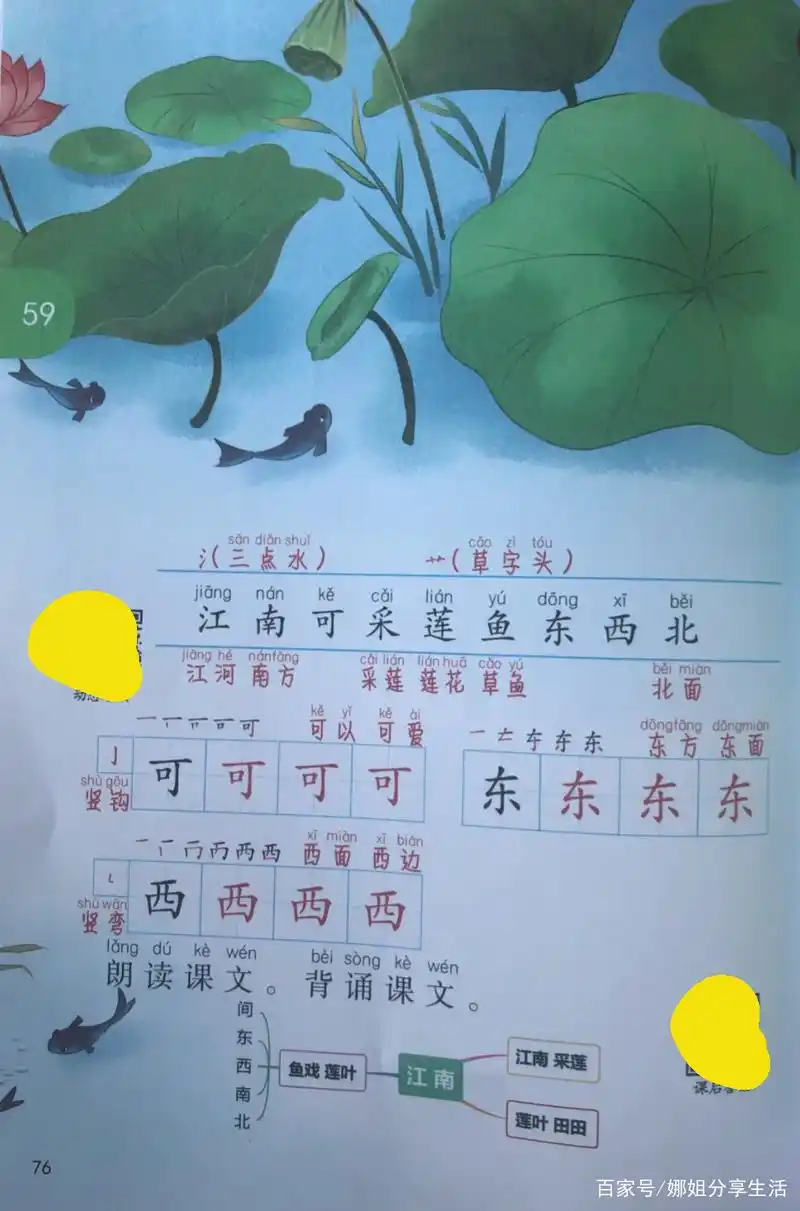 59
sān diǎn shuǐ cǎo zì tóu
氵(三点水) 艹(草字头)
jiāng nán kě cǎi lián yú dōng xī běi
江 南 可 采 莲 鱼 东 西 北
jiāng hé nánfāng cǎi lián lián huā cǎo yú běi miàn
江河 南方 采莲 莲花 草鱼 北面
kě yǐ kě ài dōngfāng dōngmiàn
可以 可爱 东方 东面
亅 可 可 可 可 东 东 东 东
shù gōu
竖钩
xī miàn xī biān
西面 西边
西 西 西 西
shù wān
竖弯
lǎng dú kè wén bèi sòng kè wén
朗读课文。背诵课文。
间
东
西
南
北
鱼戏 莲叶
江南
江南 采莲
莲叶 田田
76
百家号/娜姐分享生活